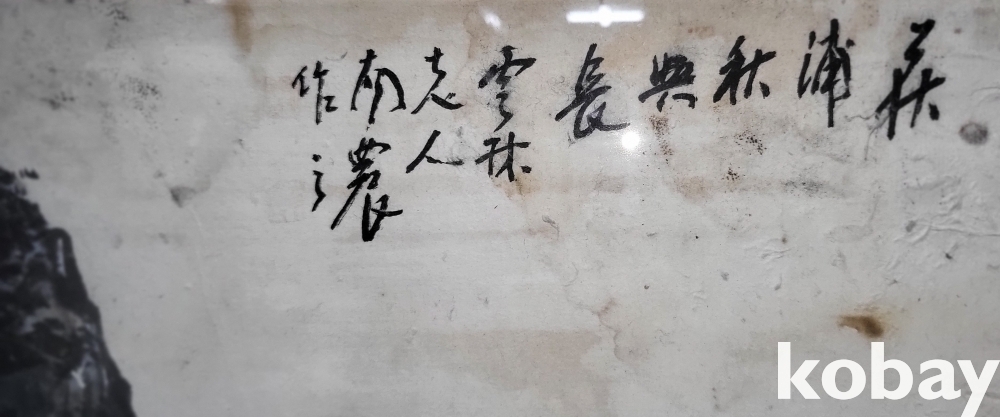 荻浦秋興長
雲林
老人
南農
作之
kobay